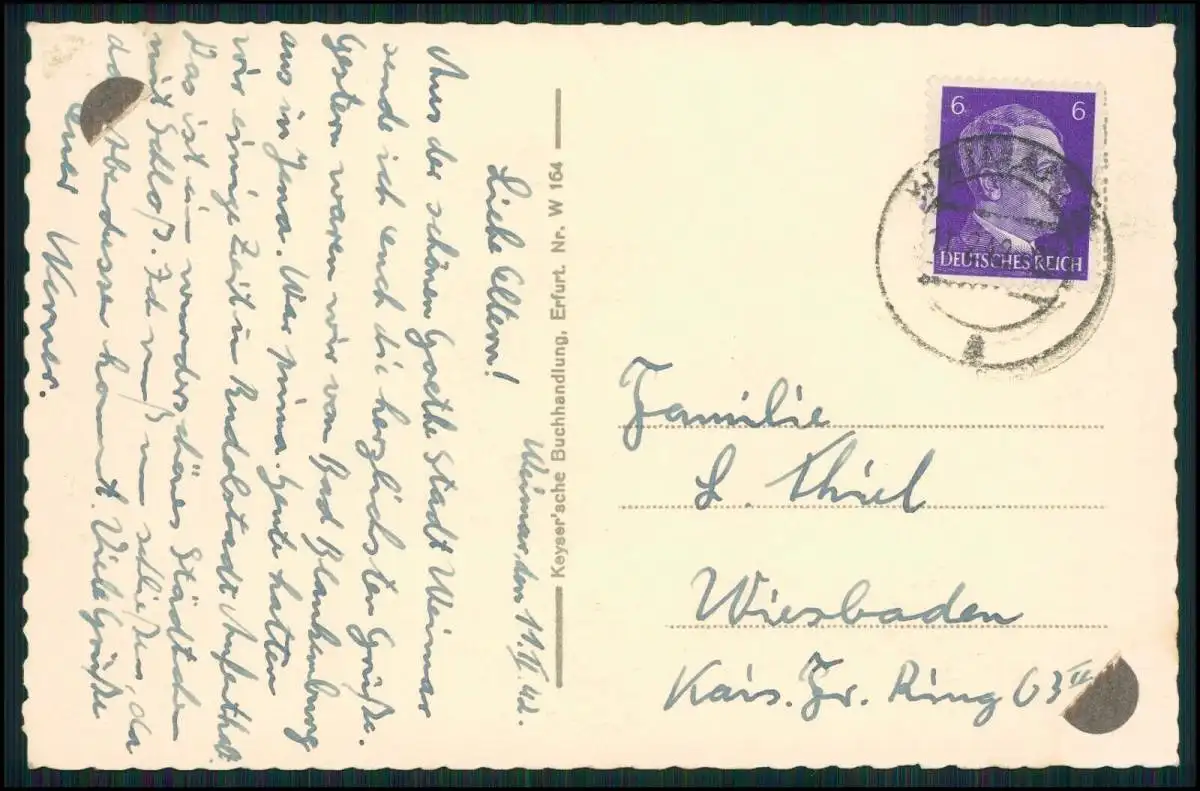 Weimar, den 11.V.42.
Liebe Eltern!
Aus der schönen Goethe Stadt Weimar
sende ich euch die herzlichsten Grüße.
Gestern waren wir von Bad Blankenburg
aus in Jena. War prima. Heute hatten
wir einige Zeit in Rudolstadt Aufenthalt.
Das ist ein wunderschönes Städtchen
mit Schloß. Ich muß nun schließen, da
das Abendessen kommt. Viele Grüße
euer Werner.
Keyser'sche Buchhandlung, Erfurt. Nr. W 164
6 6
DEUTSCHES REICH
a
Familie
L. Thiel
Wiesbaden
Kais. Fr. Ring 63 II